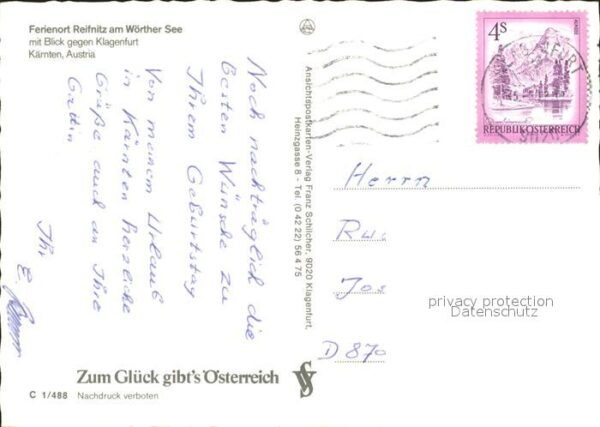 Ferienort Reifnitz am Wörther See
mit Blick gegen Klagenfurt
Kärnten, Austria
Noch nachträglich die
besten Wünsche zu
Ihrem Geburtstag
Von meinem Urlaub
in Kärnten herzliche
Grüße auch an Ihre
Gattin
Ihr
E.
Ansichtspostkarten-Verlag Franz Schilcher, 9020 Klagenfurt,
Heinzgasse 8 - Tel. (0 42 22) 56 4 75
4S
REPUBLIK ÖSTERREICH
Herrn
Jos
D 870
privacy protection
Datenschutz
Zum Glück gibt's Österreich
C 1/488 Nachdruck verboten